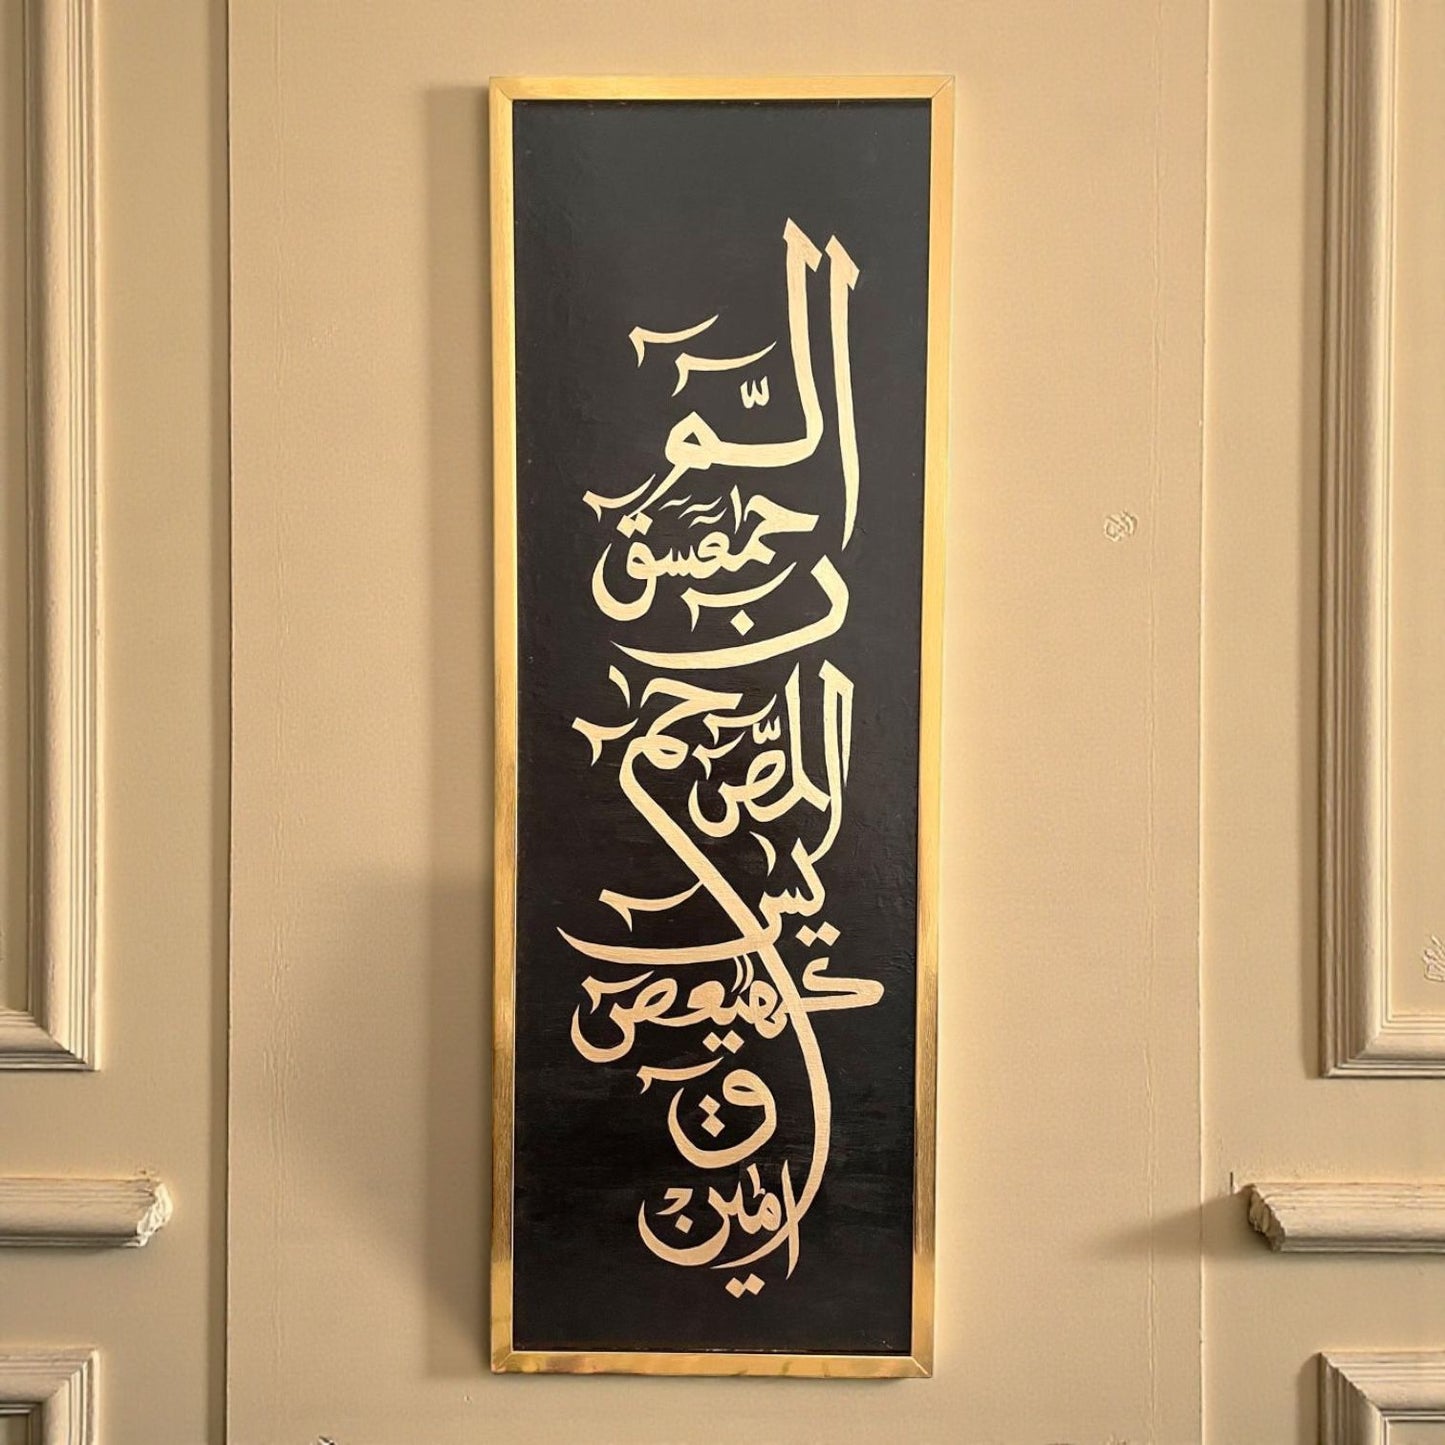 الٓمّٓ
حٰمٓعٓسٓقٓ
نٓ
حٰمٓ
الٓمّٓصٓ
يٰسٓ
كٓهٰيٰعٓصٓ
قٓ
اٰمِيْن